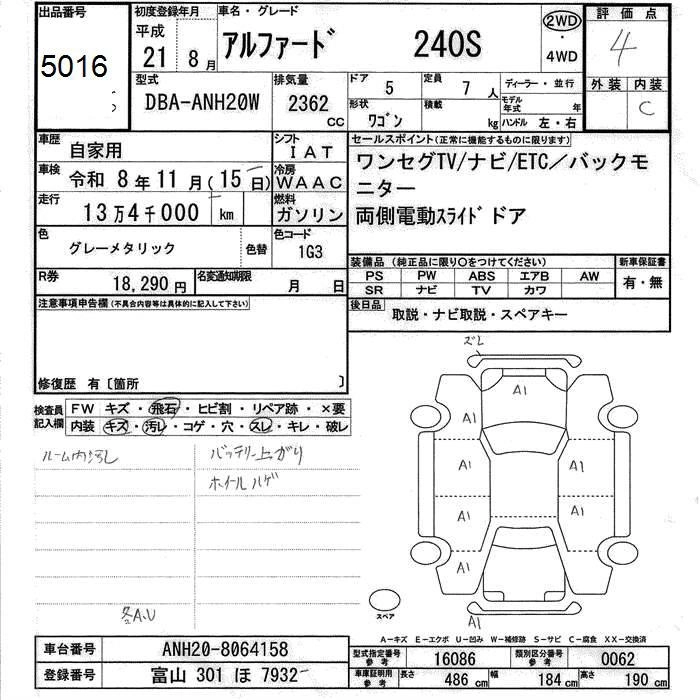 出品番号
5016
初度登録年月
平成
21年 8月
車名・グレード
アルファード 240S
2WD
・
4WD
評価点
4
外装 内装
C
型式
DBA-ANH20W
排気量
2362
cc
ドア
5
定員
7 人
形状
ワゴン
積載
kg
ディーラー・並行
モデル年式 年
ハンドル 左・右
車歴
自家用
シフト
IAT
車検
令和 8年11月(15日)
冷房
WAAC
走行
13万4千000 km
燃料
ガソリン
色
グレーメタリック
色替
色コード
1G3
R券
18,290円
名変通知期限
月 日
セールスポイント(正常に機能するものに限ります)
ワンセグTV/ナビ/ETC/バックモ
ニター
両側電動スライドドア
装備品(純正品に限り○をつけてください)
PS PW ABS エアB AW
SR ナビ TV カワ
新車保証書
有・無
後日品
取説・ナビ取説・スペアキー
注意事項申告欄(不具合内容等は具体的に記入して下さい)
修復歴 有〔箇所 〕
検査員記入欄
FW キズ・飛石・ヒビ割・リペア跡・×要
内装 キズ・汚レ・コゲ・穴・スレ・キレ・破レ
ルーム内汚レ
バッテリー上がり
ホイールハゲ
各A.U
ズレ
A1
A1
A1 A1
A1 A1
A1
A1
A1
スペア
A-キズ E-エクボ U-凹み W-補修跡 S-サビ C-腐食 XX-交換済
車台番号
ANH20-8064158
登録番号
富山 301 ほ 7932
型式指定番号
参考
16086
類別区分番号
参考
0062
車庫証明用
参考
長さ 486cm
幅 184cm
高さ 190cm